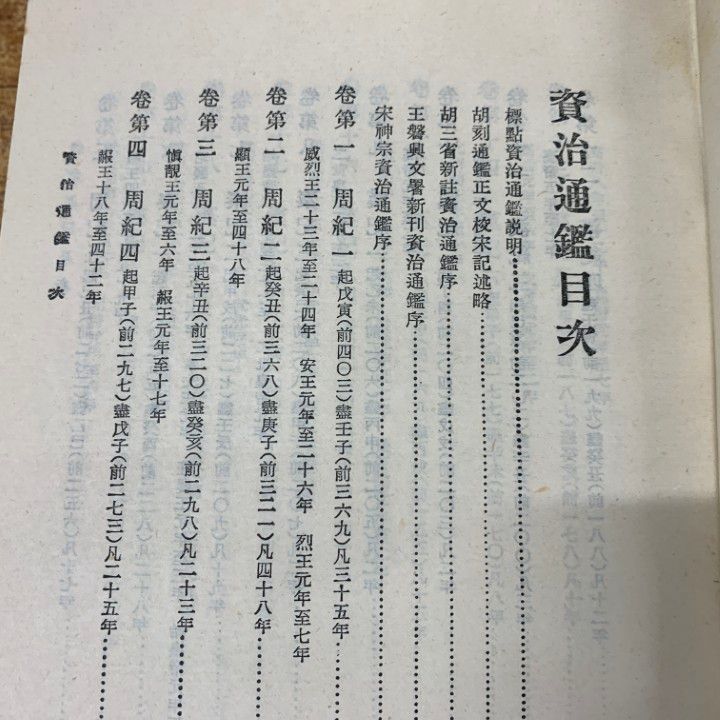 資治通鑑目次
標點資治通鑑説明
胡刻通鑑正文校宋記述略
胡三省新註資治通鑑序
王磐興文署新刊資治通鑑序
宋神宗資治通鑑序
卷第一 周紀一 起戊寅(前四〇三)盡壬子(前三六九)凡三十五年
威烈王二十三年至二十四年 安王元年至二十六年 烈王元年至七年
卷第二 周紀二 起癸丑(前三六八)盡庚子(前三二一)凡四十八年
顯王元年至四十八年
卷第三 周紀三 起辛丑(前三二〇)盡癸亥(前二九八)凡二十三年
慎靚王元年至六年 赧王元年至十七年
卷第四 周紀四 起甲子(前二九七)盡戊子(前二七三)凡二十五年
赧王十八年至四十二年
資治通鑑目次